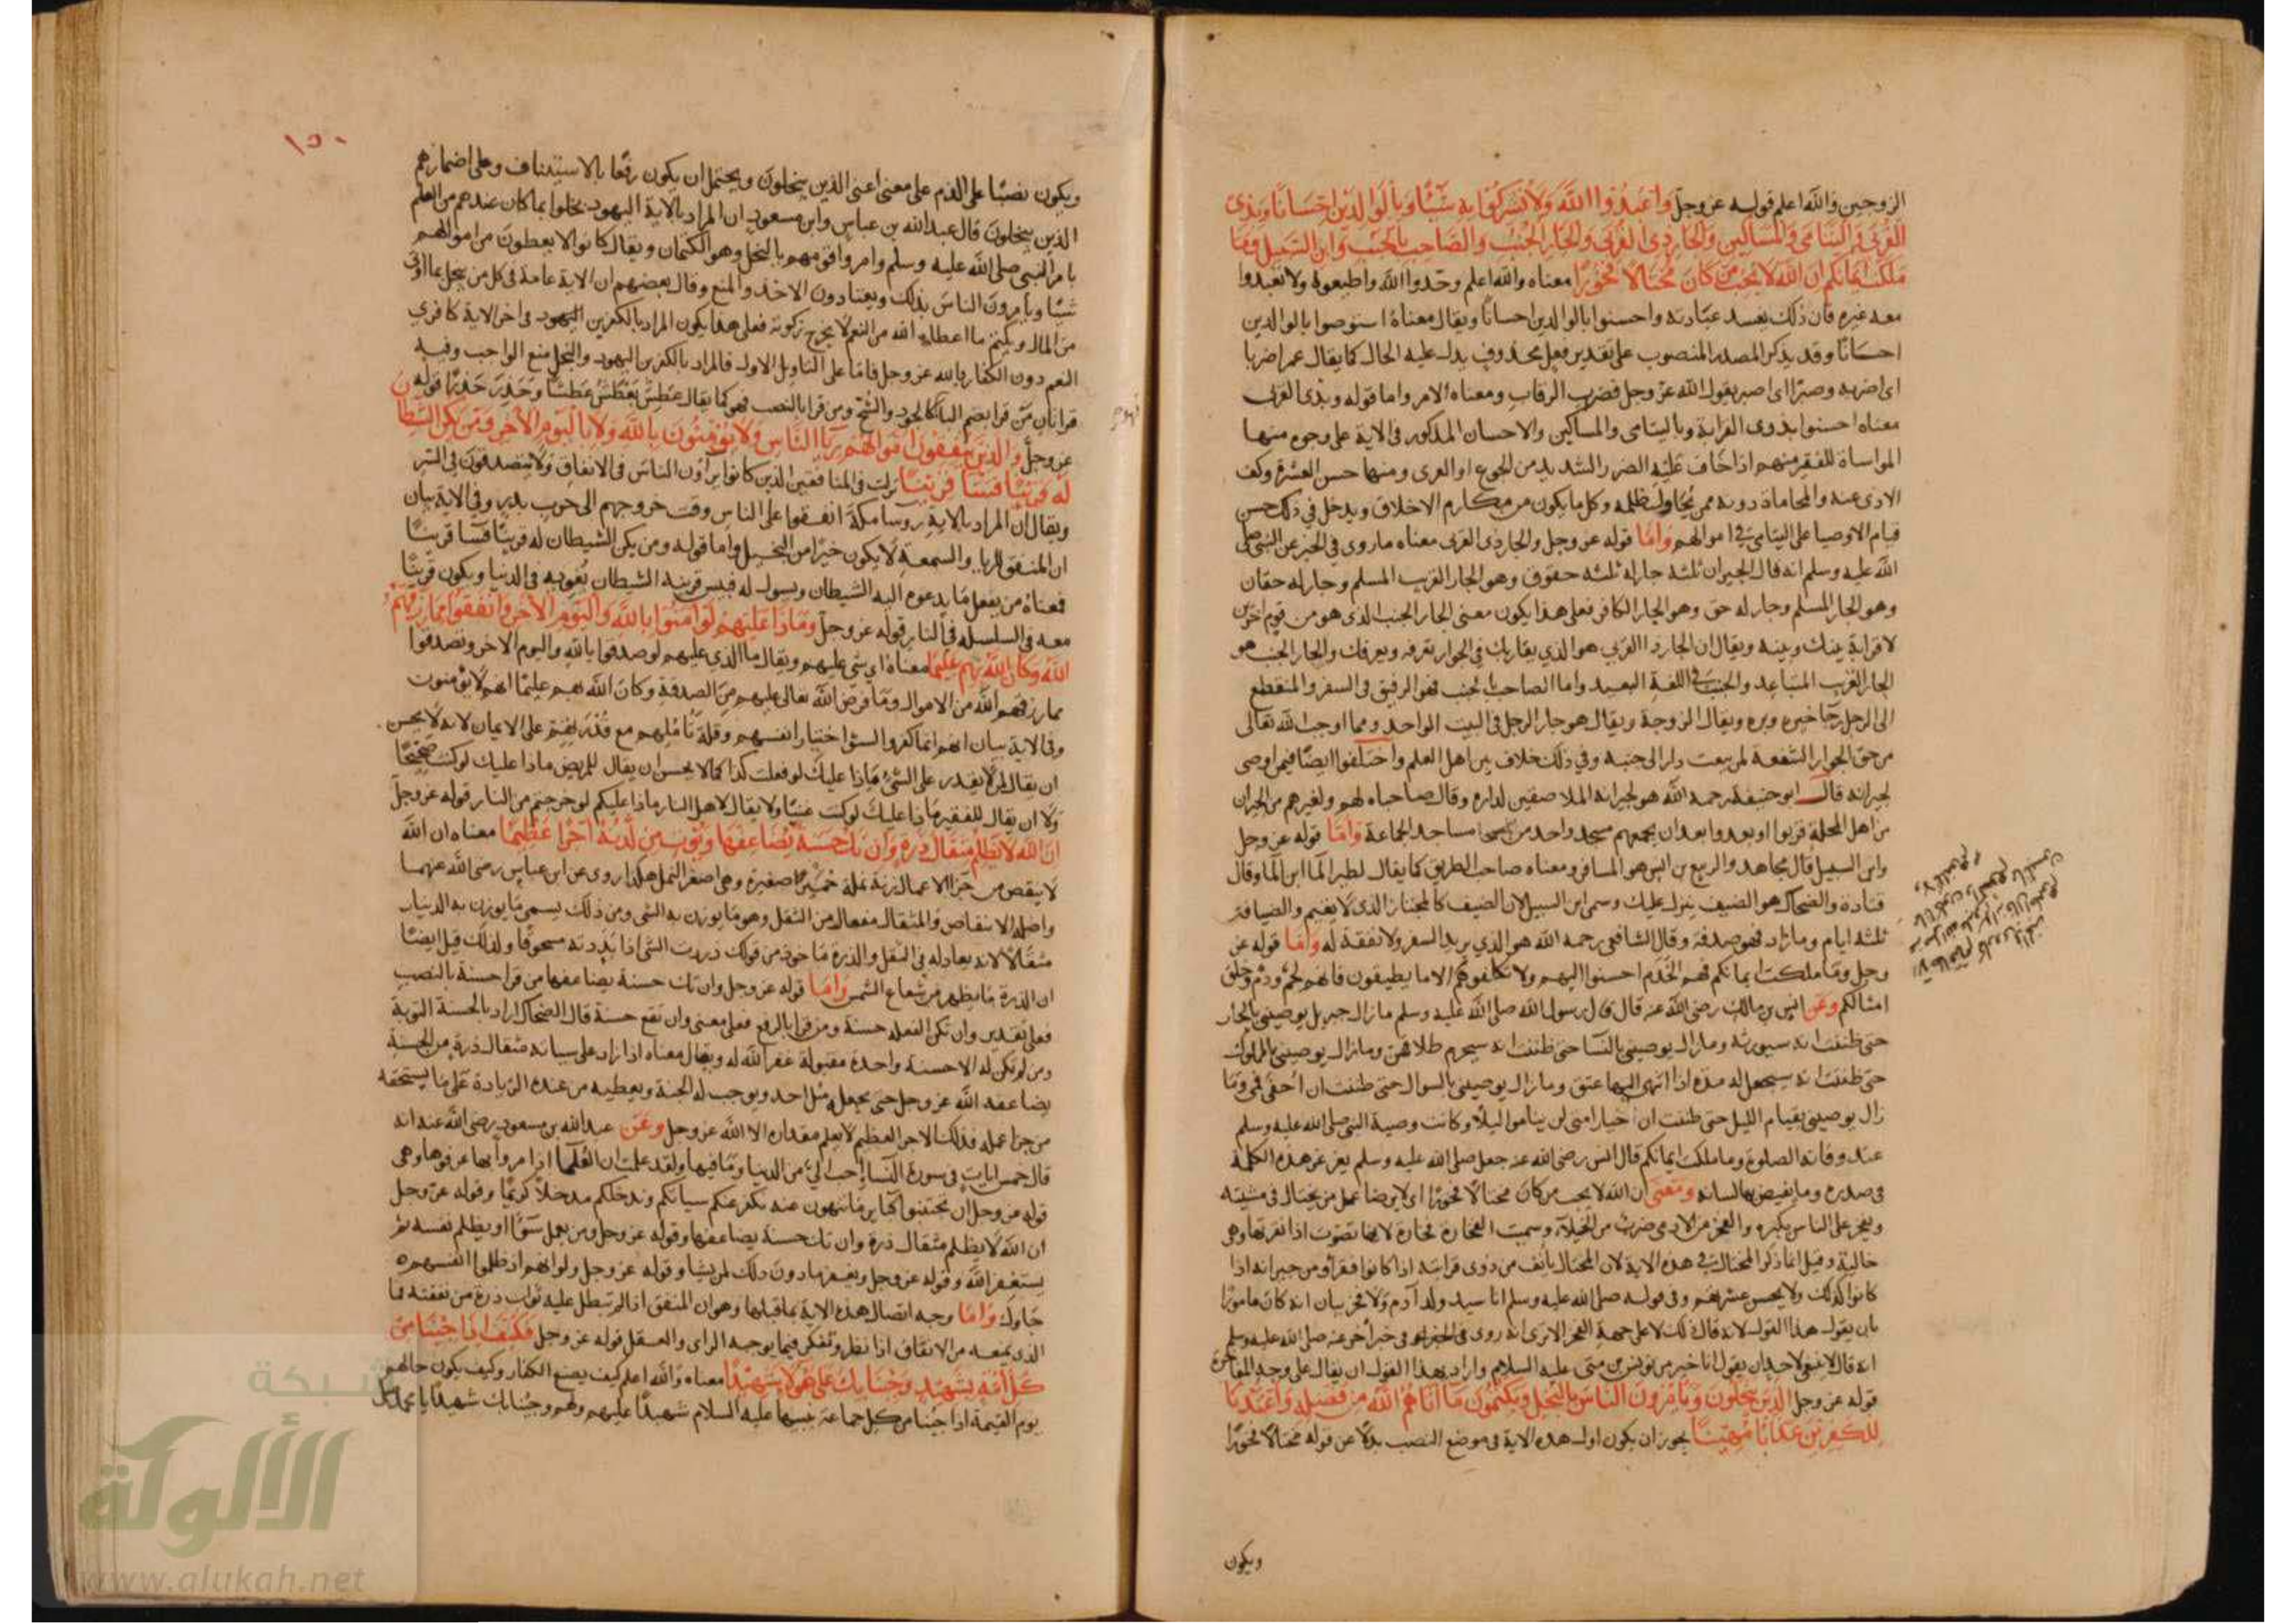 الزوجين والله اعلم قوله عز وجل واعبدوا الله ولا تشركوا به شيئا وبالوالدين احسانا وبذى
القربى واليتامى والمساكين والجار ذى القربى والجار الجنب والصاحب بالجنب وابن السبيل وما
ملكت ايمانكم ان الله لا يحب من كان مختالا فخورا معناه والله اعلم وحدوا الله واطيعوه ولا تعبدوا
معه غيره فان ذلك يفسد عبادته واحسنوا بالوالدين احسانا ويقال معناه استوصوا بالوالدين
احسانا وقد يذكر المصدر المنصوب على تقدير فعل محذوف يدل عليه الحال كما يقال عمر اضربا
اى اضربه وصبرا اى اصبر يقول الله عز وجل فضرب الرقاب ومعناه الامر واما قوله وبذى القربى
معناه احسنوا بذوى القرابة وباليتامى والمساكين والاحسان المذكور فى الاية على وجوه منها
المواساة للفقير منهم اذا خاف عليه الضرر الشديد من الجوع او العرى ومنها حسن العشرة وكف
الاذى عنه والمحاماة دونه ممن يحاول ظلمه وكل ما يكون من مكارم الاخلاق ويدخل في ذلك حسن
قيام الاوصيا على اليتامى في اموالهم واما قوله عز وجل والجار ذى القربى معناه ما روى في الخبر عن النبى صلى
الله عليه وسلم انه قال الجيران ثلثة جار له ثلثة حقوق وهو الجار القريب المسلم وجار له حقان
وهو الجار المسلم وجار له حق وهو الجار الكافر فعلى هذا يكون معنى الجار الجنب الذى هو من قوم اخرين
لا قرابة بينك وبينه ويقال ان الجار ذا القربى هو الذي يقاربك في الجوار تعرفه ويعرفك والجار الجنب هو
الجار الغريب المتباعد والجنب في اللغة البعيد واما الصاحب بالجنب فهو الرفيق فى السفر والمنقطع
الى الرجل رجا خيره وبره ويقال الزوجة ويقال هو جار الرجل فى البيت الواحد ومما اوجب الله تعالى
من حق الجوار الشفعة لمن بيعت دار الى جنبه وفي ذلك خلاف بين اهل العلم واختلفوا ايضا فيمن اوصى
لجيرانه قال ابو حنيفة رحمه الله هو لجيرانه الملاصقين لداره وقال صاحباه لهم ولغيرهم من الجيران
من اهل المحلة قربوا او بعدوا بعد ان يجمعهم مسجد واحد من مساجد الجماعة واما قوله عز وجل
وابن السبيل قال مجاهد والربيع بن انس هو المسافر ومعناه صاحب الطريق كما يقال لطير الما ابن الما وقال
قتادة والضحاك هو الضيف ينزل عليك وسمى ابن السبيل لان الضيف كالمجتاز الذى لا يقيم والضيافة
ثلثة ايام وما زاد فهو صدقة وقال الشافعى رحمه الله هو الذي يريد السفر ولا نفقة له واما قوله عز
وجل وما ملكت ايمانكم فهم الخدم احسنوا اليهم ولا تكلفوهم الا ما يطيقون فانهم لحم ودم وخلق
امثالكم وعن انس بن مالك رضى الله عنه قال قال رسول الله صلى الله عليه وسلم ما زال جبريل يوصينى بالجار
حتى ظننت انه سيورثه وما زال يوصينى بالنسا حتى ظننت انه سيحرم طلاقهن وما زال يوصينى بالمملوك
حتى ظننت انه سيجعل له مدة اذا انتهى اليها عتق وما زال يوصينى بالسواك حتى ظننت ان احفى فمى وما
زال يوصينى بقيام الليل حتى ظننت ان اخيار امتى لن يناموا ليلا وكانت وصية النبى صلى الله عليه وسلم
عند وفاته الصلوة وما ملكت ايمانكم قال انس رضى الله عنه جعل صلى الله عليه وسلم يغرغر هذه الكلمة
فى صدره وما يفيض بها لسانه ومعنى ان الله لا يحب من كان مختالا فخورا اى لا يرضا عمل من يختال فى مشيته
ويفخر على الناس بكبره والفخر من الادمى ضرب من الخيلاء وسميت الفخارة فخارة لانها تصوت اذا نقرتها وهى
خالية وقيل انما ذكر المختال في هذه الاية لان المختال يانف من ذوى قرابته اذا كانوا فقرا ومن جيرانه اذا
كانوا كذلك ولا يحسن عشرتهم وفى قوله صلى الله عليه وسلم انا سيد ولد ادم ولا فخر بيان انه كان مامورا
بان يقول هذا القول لانه قال ذلك لا على جهة الفخر الا ترى انه روى فى خبر اخر عنه صلى الله عليه وسلم
انه قال لا ينبغى لاحد ان يقول انا خير من يونس بن متى عليه السلام واراد بهذا القول ان يقال على وجه المفاخرة
قوله عز وجل الذين يبخلون ويامرون الناس بالبخل ويكتمون ما اتاهم الله من فضله واعتدنا
للكفرين عذابا مهينا يجوز ان يكون اول هذه الاية فى موضع النصب بدلا عن قوله مختالا فخورا
ويكون
١٥٠
ويكون نصبا على الذم على معنى اعنى الذين يبخلون ويحتمل ان يكون رفعا بالاستيناف وعلى اضمار هم
الذين يبخلون قال عبد الله بن عباس وابن مسعود ان المراد بالاية اليهود بخلوا بما كان عندهم من العلم
بامر النبى صلى الله عليه وسلم وامروا قومهم بالبخل وهو الكتمان ويقال كانوا لا يعطون من اموالهم
شيئا ويامرون الناس بذلك ويعتادون الاخذ والمنع وقال بعضهم ان الاية عامة فى كل من يبخل بما اوتى
من المال ويكتم ما اعطاه الله من النعم لا يخرج زكوته فعلى هذا يكون المراد بالكفرين اليهود فى اخر الاية كافري
النعم دون الكفار بالله عز وجل فاما على التاويل الاول فالمراد بالكفرين اليهود والبخل منع الواجب وفيه
قراتان من قرا بضم البا كالجود والشح ومن قرا بالنصب فهو كما يقال عطش يعطش عطشا وحذر حذرا قوله
عز وجل والذين ينفقون اموالهم ريا الناس ولا يؤمنون بالله ولا باليوم الاخر ومن يكن الشيطان
له قرينا فسا قرينا نزلت فى المنافقين الذين كانوا يراؤن الناس فى الانفاق ولا يتصدقون فى السر
ويقال ان المراد بالاية روسا مكة انفقوا على الناس وقت خروجهم الى حرب بدر وفى الاية بيان
ان المنفق للريا والسمعة لا يكون خيرا من البخيل واما قوله ومن يكن الشيطان له قرينا فسا قرينا
فمعناه من يفعل ما يدعوه اليه الشيطان ويسول له فبيس قرينه الشيطان يغويه فى الدنيا ويكون قرينا
معه فى السلسلة فى النار قوله عز وجل وماذا عليهم لو امنوا بالله واليوم الاخر وانفقوا مما رزقهم
الله وكان الله بهم عليما معناه اي شى عليهم ويقال ما الذى عليهم لو صدقوا بالله واليوم الاخر وتصدقوا
مما رزقهم الله من الاموال وما فرض الله تعالى عليهم من الصدقة وكان الله بهم عليما انهم لا يؤمنون
وفى الاية بيان انهم انما كفروا لسؤ اختيار انفسهم وقلة تاملهم مع قدرتهم على الايمان لانه لا يحسن
ان يقال لمن لا يقدر على الشئ ماذا عليك لو فعلت كذا كما لا يحسن ان يقال للمريض ماذا عليك لو كنت صحيحا
ولا ان يقال للفقير ماذا عليك لو كنت غنيا ولا يقال لاهل النار ماذا عليكم لو خرجتم من النار قوله عز وجل
ان الله لا يظلم مثقال ذرة وان تك حسنة يضاعفها ويؤت من لدنه اجرا عظيما معناه ان الله
لا ينقص من جزا الاعمال زنة نملة صغيرة وهى اصغر النمل هكذا روى عن ابن عباس رضى الله عنهما
واصله الانتقاص والمثقال مفعال من الثقل وهو ما يوزن به الشى ومن ذلك يسمى ما يوزن به الدينار
مثقالا لانه يعادله في الثقل والذرة ماخوذ من قولك ذررت الشى اذا بددته مسحوقا ولذلك قيل ايضا
ان الذرة ما يظهر من شعاع الشمس واما قوله عز وجل وان تك حسنة يضاعفها من قرا حسنة بالنصب
فعلى تقدير وان تكن الفعلة حسنة ومن قرا بالرفع فعلى معنى وان تقع حسنة قال الضحاك اراد بالحسنة التوبة
ومن لم تكن له الا حسنة واحدة مقبولة غفر الله له ويقال معناه اذا زاد على سياته مثقال ذرة من الحسنة
يضاعفه الله عز وجل حتى يجعله مثل احد ويوجب له الجنة ويعطيه من عنده الزيادة على ما يستحقه
من جزا عمله فذلك الاجر العظيم لا يعلم مقداره الا الله عز وجل وعن عبد الله بن مسعود رضى الله عنه انه
قال خمس ايات فى سورة النسا احب الي من الدنيا وما فيها ولقد علمت ان العلما اذا مروا بها عرفوها وهى
قوله عز وجل ان تجتنبوا كباير ما تنهون عنه نكفر عنكم سياتكم وندخلكم مدخلا كريما وقوله عز وجل
ان الله لا يظلم مثقال ذرة وان تك حسنة يضاعفها وقوله عز وجل ومن يعمل سوءا او يظلم نفسه ثم
يستغفر الله وقوله عز وجل ويغفر ما دون ذلك لمن يشا وقوله عز وجل ولو انهم اذ ظلموا انفسهم
جاوك واما وجه اتصال هذه الاية بما قبلها وهو ان المنفق اذا لم تبطل عليه ثواب ذرة من نفقته فما
الذى يمنعه من الانفاق اذا نظر وتفكر فيما يوجبه الراى والعقل قوله عز وجل فكيف اذا جئنا من
كل امة بشهيد وجئنا بك على هولا شهيدا معناه والله اعلم كيف يصنع الكفار وكيف يكون حالهم
يوم القيمة اذا جئنا من كل جماعة بنبيها عليه السلام شهيدا عليهم ولهم وجئنا بك شهيدا يا محمد
شبكة
الألوكة
www.alukah.net